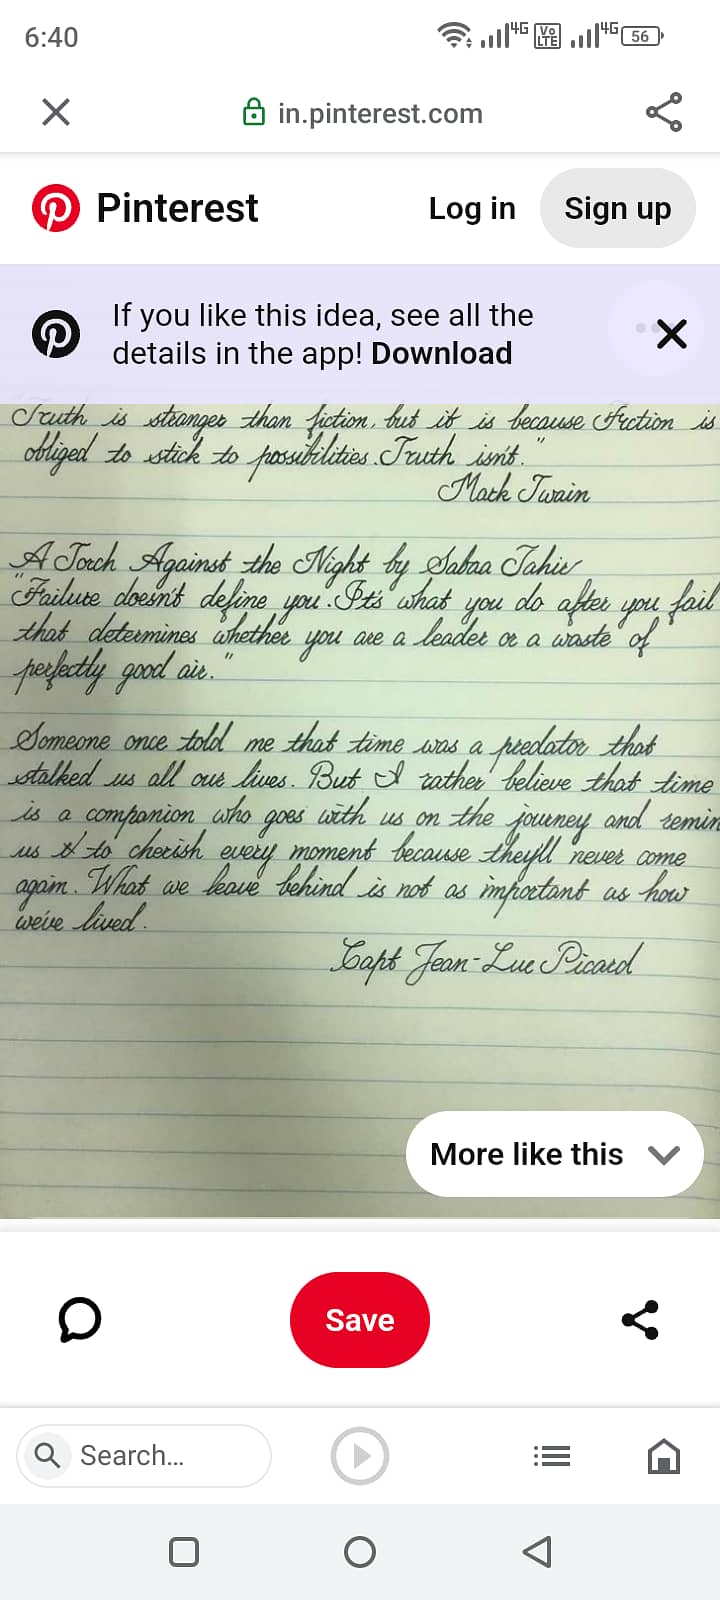 6:40
4G
Vo
LTE
4G
56
in.pinterest.com
Pinterest
Log in
Sign up
If you like this idea, see all the
details in the app! Download
"Truth is stranger than fiction, but it is because Fiction is
obliged to stick to possibilities. Truth isn't."
Mark Twain
A Torch Against the Night by Sabaa Tahir
"Failure doesn't define you. It's what you do after you fail
that determines whether you are a leader or a waste of
perfectly good air."
Someone once told me that time was a predator that
stalked us all our lives. But I rather believe that time
is a companion who goes with us on the journey and remin
us to cherish every moment because they'll never come
again. What we leave behind is not as important as how
we've lived.
Capt Jean-Luc Picard
More like this
Save
Search...